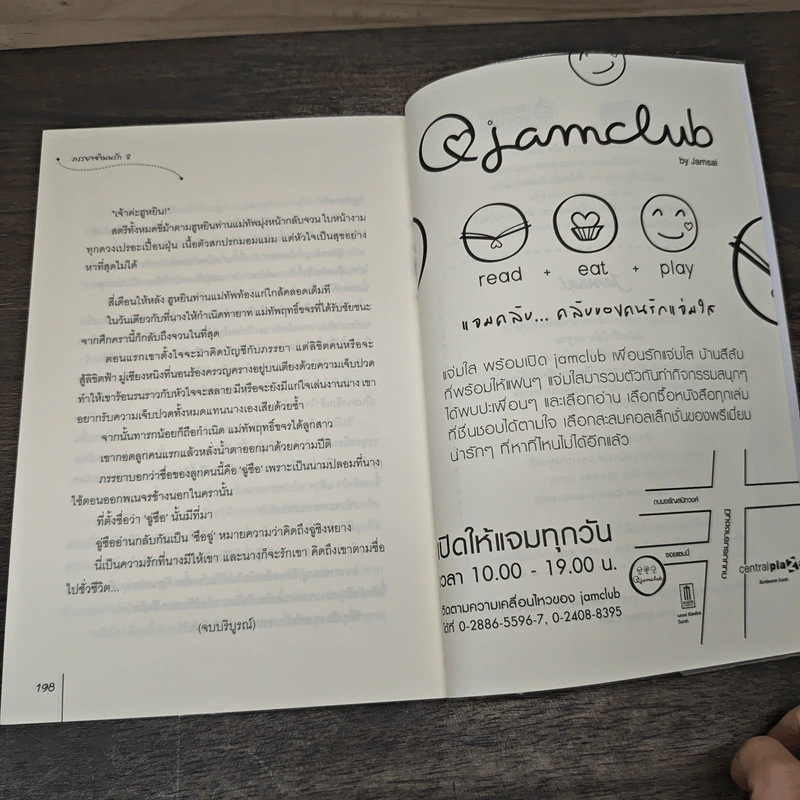 ภรรยาจ้าวนรัก 2
"เจ้าค่ะฮูหยิน!"
สตรีทั้งหมดขี่ม้าตามฮูหยินท่านแม่ทัพมุ่งหน้ากลับจวน ใบหน้างาม
ทุกดวงเปรอะเปื้อนฝุ่น เนื้อตัวสกปรกมอมแมม แต่หัวใจเป็นสุขอย่าง
หาที่สุดไม่ได้
สี่เดือนให้หลัง ฮูหยินท่านแม่ทัพท้องแก่ใกล้คลอดเต็มที
ในวันเดียวกับที่นางให้กำเนิดทายาท แม่ทัพฤทธิ์ขจรที่ได้รับชัยชนะ
จากศึกครานี้ก็กลับถึงจวนในที่สุด
ตอนแรกเขาตั้งใจจะมาคิดบัญชีกับภรรยา แต่ลิขิตคนหรือจะ
สู้ลิขิตฟ้า มู่เซียงหนิงที่นอนร้องครวญครางอยู่บนเตียงด้วยความเจ็บปวด
ทำให้เขาร้อนรนราวกับหัวใจจะสลาย มีหรือจะยังมีแก่ใจเล่นงานนาง เขา
อยากรับความเจ็บปวดทั้งหมดแทนนางเองเสียด้วยซ้ำ
จากนั้นทารกน้อยก็ถือกำเนิด แม่ทัพฤทธิ์ขจรได้ลูกสาว
เขากอดลูกคนแรกแล้วหลั่งน้ำตาออกมาด้วยความปีติ
ภรรยาบอกว่าชื่อของลูกคนนี้คือ 'อู๋ซือ' เพราะเป็นนามปลอมที่นาง
ใช้ตอนออกพเนจรข้างนอกในครานั้น
ที่ตั้งชื่อว่า 'อู๋ซือ' นั้นมีที่มา
อู๋ซืออ่านกลับกันเป็น 'ซืออู๋' หมายความว่าคิดถึงอู๋ชิงหยาง
นี่เป็นความรักที่นางมีให้เขา และนางก็จะรักเขา คิดถึงเขาตามชื่อ
ไปชั่วชีวิต...
(จบบริบูรณ์)
198
@jamclub
by Jamsai
read + eat + play
แจมคลับ... คลับของคนรักแจ่มใส
แจ่มใส พร้อมเปิด jamclub เพื่อนรักแจ่มใส บ้านสีส้ม
ที่พร้อมให้แฟนๆ แจ่มใสมารวมตัวกันทำกิจกรรมสนุกๆ
ได้พบปะเพื่อนๆ และเลือกอ่าน เลือกซื้อหนังสือทุกเล่ม
ที่ชื่นชอบได้ตามใจ เลือกสะสมคอลเล็กชั่นของพรีเมี่ยม
น่ารักๆ ที่หาที่ไหนไม่ได้อีกแล้ว
เปิดให้แจมทุกวัน
เวลา 10.00 - 19.00 น.
ติดตามความเคลื่อนไหวของ jamclub
ได้ที่ 0-2886-5596-7, 0-2408-8395
ถนนจรัญสนิทวงศ์
@jamclub
centralplaza